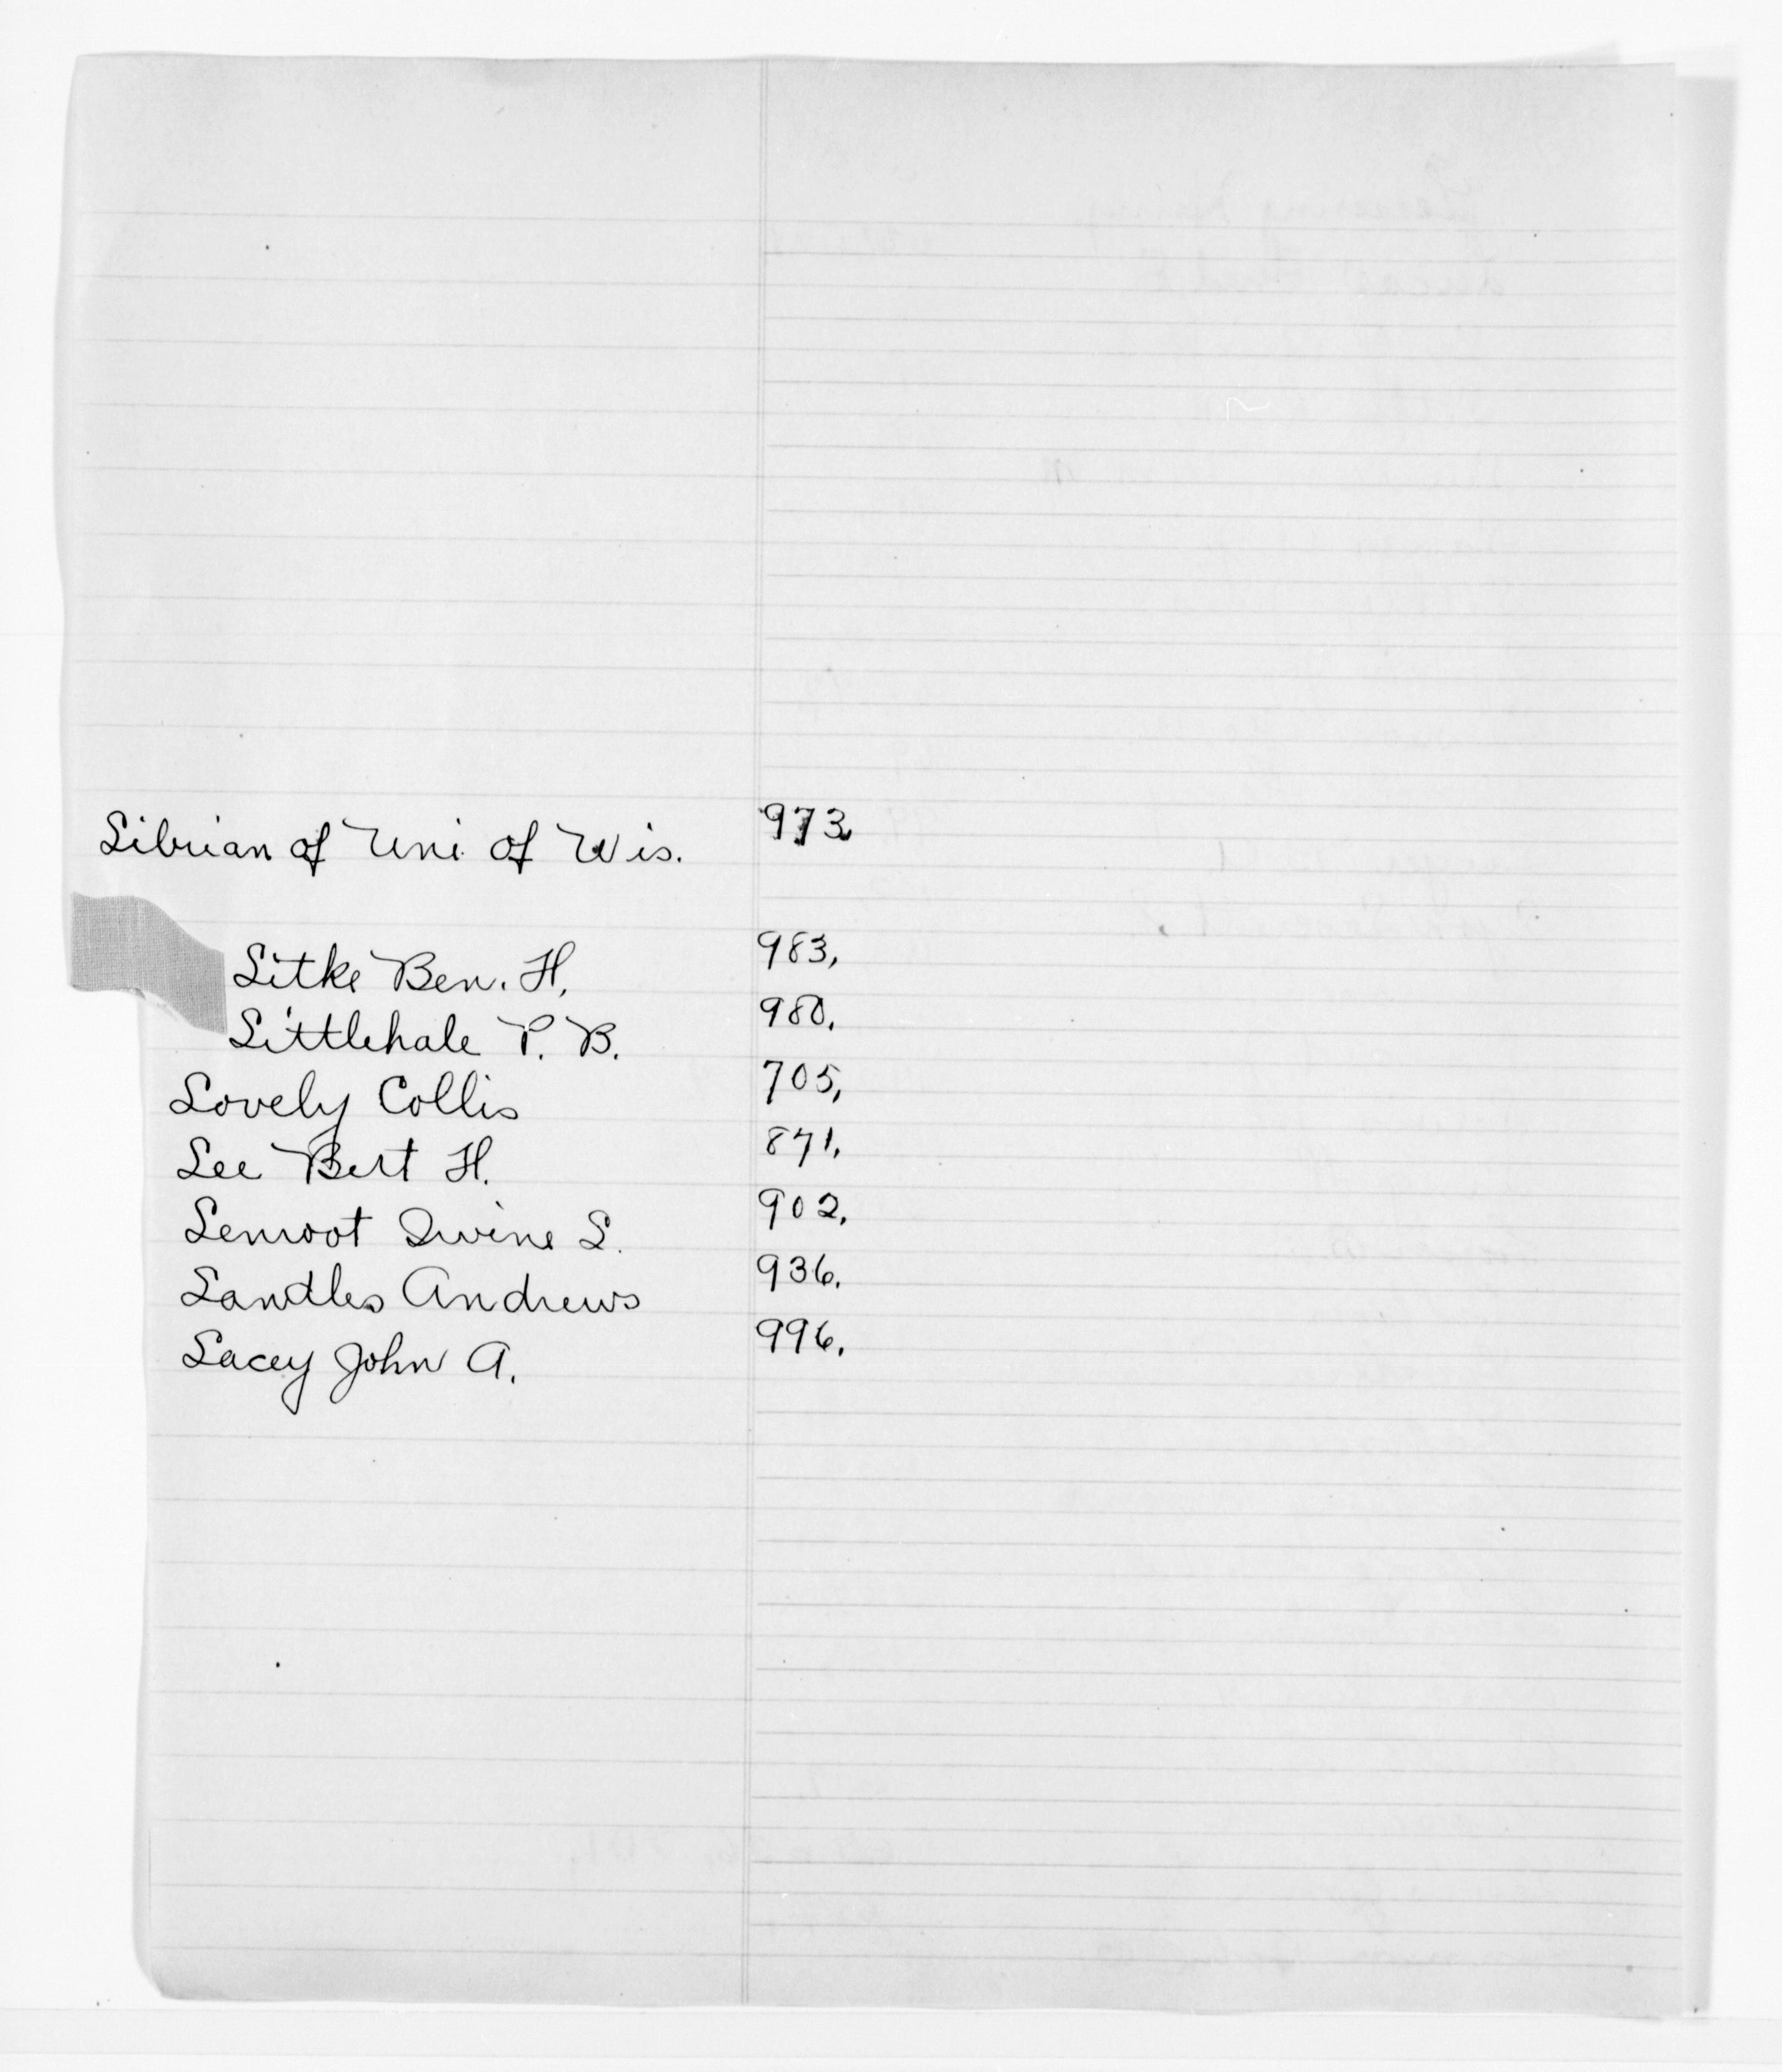 Librian of Uni of Wis. 973
Litke Ben. H. 983,
Littlehale P. B. 980.
Lovely Collis 705,
Lee Bert H. 871.
Lenroot Irvine L. 902.
Landles Andrews 936.
Lacey John A. 996.